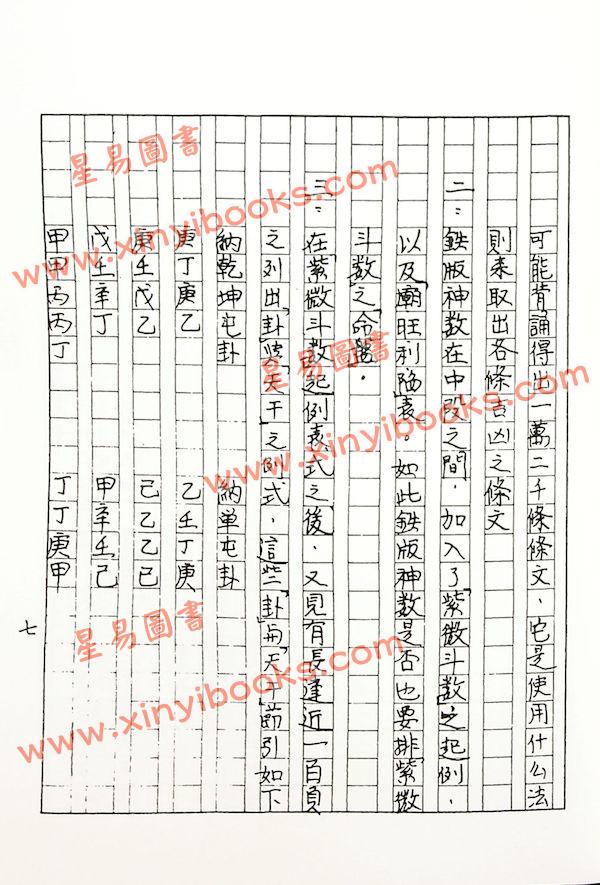 可能背誦得出一萬二千條條文、它是使用什么法
則来取出各條吉凶之條文
二：鉄版神数在中段之間．加入了「紫微斗数」之起例．
以及「廟旺利陷」表。如此鉄版神数是否也要排「紫微
斗数」之「命盤」．
三：在「紫微斗数起例表」式之後．又見有長達近一百頁
之列出「卦」與「天干」之例式．這些「卦」与「天干」節引如下
納乾坤屯卦　納単屯卦
庚丁庚乙　乙壬丁庚
庚壬戊乙　己乙乙巳
戊壬辛丁　甲辛壬己
甲甲丙丙丁　丁丁庚甲
七
星易圖書
www.xinyibooks.com
星易圖書
www.xinyibooks.com
星易圖書
www.xinyibooks.com